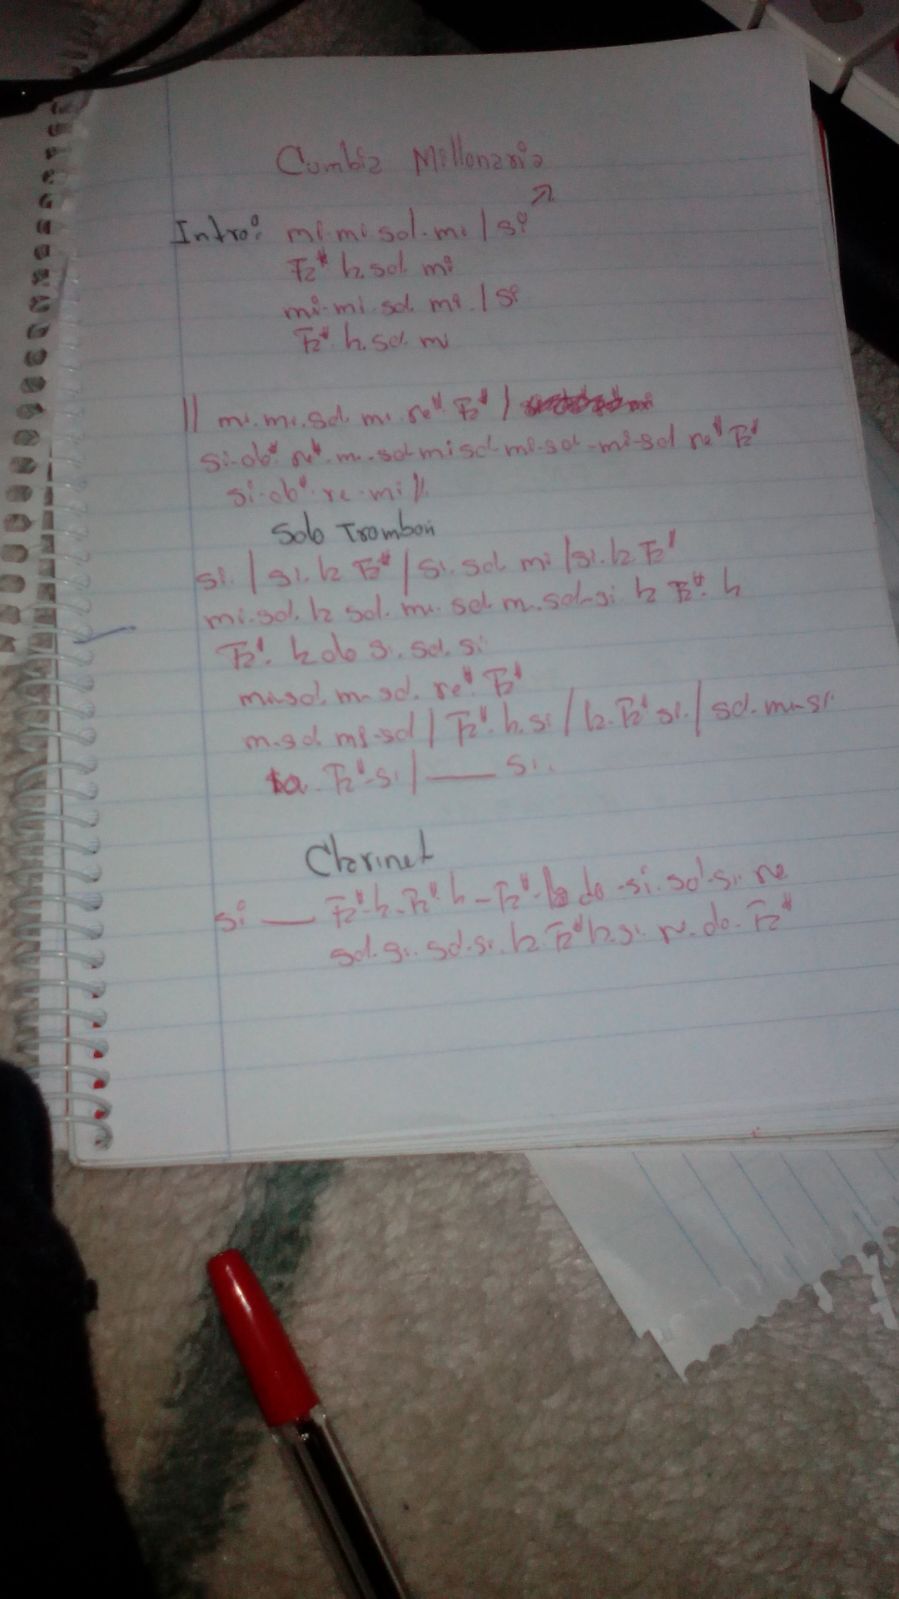 Cumbia Millonaria
Intro: mi-mi-sol-mi / si
Fa# la sol mi
mi-mi-sol mi / si
Fa# la sol mi
|| mi. mi. sol. mi. re# Fa# / mi
si-do# re# mi-sol mi sol-mi-sol-mi-sol re# Fa#
si-do#-re-mi //
Solo Trombon
si. / si. la Fa# / si. sol mi / si. la Fa#
mi. sol. la sol. mi. sol mi. sol-si la Fa#. la
Fa#. la do si. sol. si
mi-sol. mi-sol. re#. Fa#
mi-sol mi-sol / Fa#. la. si / la. Fa# si. / sol. mi-si
la. Fa#-si / ___ si.
Clarinet
si — Fa#-la-Fa# la-Fa#-la do-si. sol-si. re
sol. si. sol-si. la Fa# la. si. re. do. Fa#